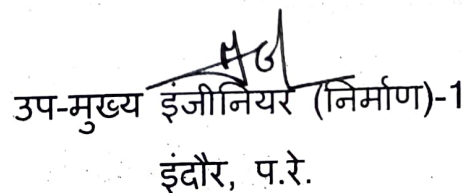 उप-मुख्य इंजीनियर (निर्माण)-1
इंदौर, प.रे.